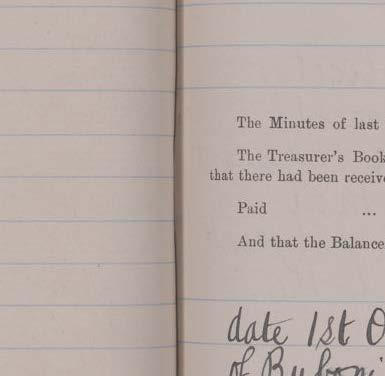 The Minutes of last
The Treasurer's Book
that there had been receive
Paid ...
And that the Balance
date 1st O
of Buboni